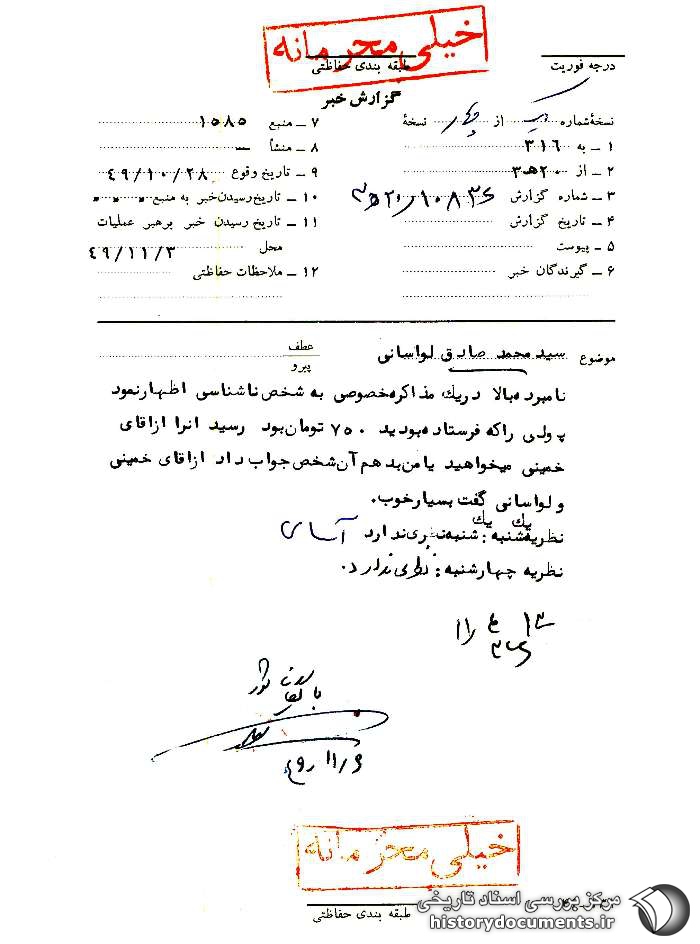 خیلی محرمانه
درجه فوریت
طبقه بندی حفاظتی
گزارش خبر
نسخهٔ شماره یک از چهار نسخهٔ
۱ – به ۳۱۶
۲ – از ۲۰هـ۳
۳ – شماره گزارش ۱۰۸۳۶/۲۰هـ۳
۴ – تاریخ گزارش
۵ – پیوست
۶ – گیرندگان خبر
۷ – منبع ۱۵۸۵
۸ – منشأ –
۹ – تاریخ وقوع ۴۹/۱۰/۲۸
۱۰ – تاریخ رسیدن خبر به منبع
۱۱ – تاریخ رسیدن خبر برهبر عملیات
محل ۴۹/۱۱/۳
۱۲ – ملاحظات حفاظتی
موضوع سید محمد صادق لواسانی
عطف
پیرو
نامبرده بالا در یك مذاکره خصوصی به شخص ناشناسی اظهار نمود
پولی را که فرستاده بودید ۷۵۰ تومان بود رسید انرا از اقای
خمینی میخواهید یا من بدهم آن شخص جواب داد از اقای خمینی
و لواسانی گفت بسیار خوب.
نظریه یك شنبه : یك شنبه نظری ندارد آسای
نظریه چهارشنبه : نظری ندارد.
۱۱
بایگانی شود
۴۹/۱۱/۶
خیلی محرمانه
طبقه بندی حفاظتی
مرکز بررسی اسناد تاریخی
historydocuments.ir